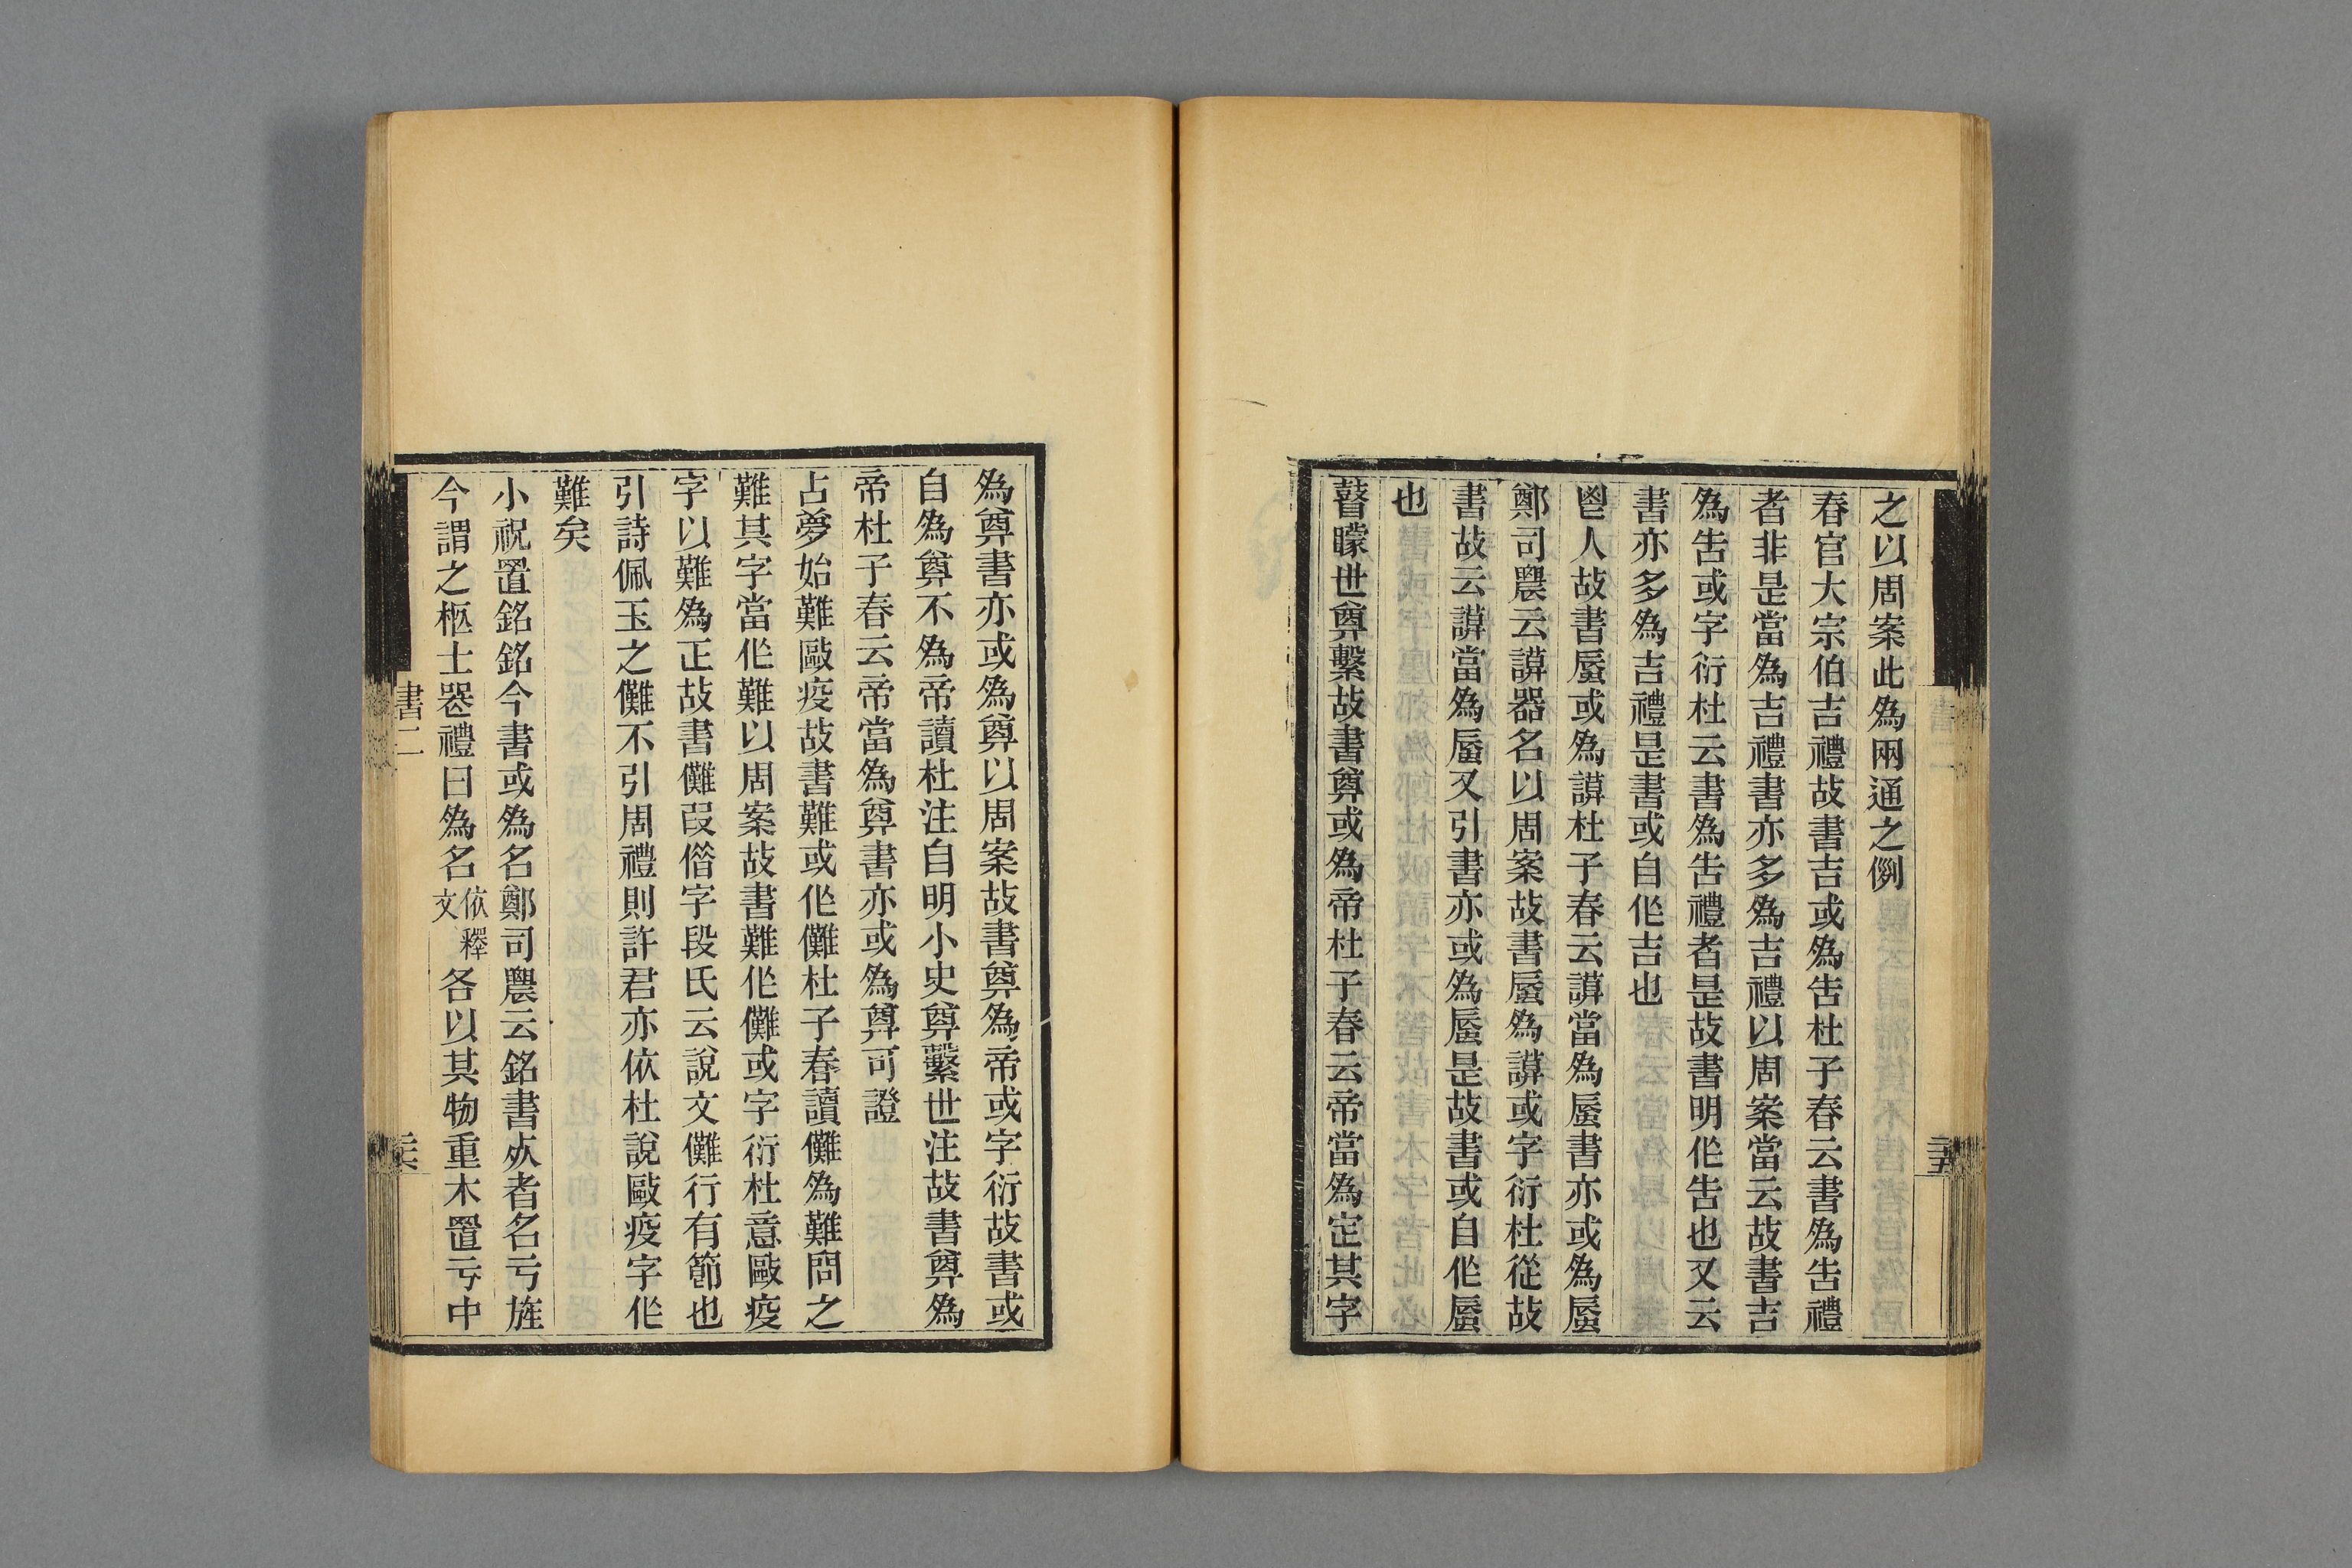 之以周案此為兩通之例
春官大宗伯吉禮故書吉或為告杜子春云書為告禮
者非是當為吉禮書亦多為吉禮以周案當云故書吉
為告或字衍杜云書為告禮者是故書明作告也又云
書亦多為吉禮是書或自作吉也
鬯人故書蜃或為謨杜子春云謨當為蜃書亦或為蜃
鄭司農云謨器名以周案故書蜃為謨或字衍杜從故
書故云謨當為蜃又引書亦或為蜃是故書或自作蜃
也
瞽矇世奠繫故書奠或為帝杜子春云帝當為定其字
為奠書亦或為奠以周案故書奠為帝或字衍故書或
自為奠不為帝讀杜注自明小史奠繫世注故書奠為
帝杜子春云帝當為奠書亦或為奠可證
占夢始難歐疫故書難或作儺杜子春讀儺為難問之
難其字當作難以周案故書難作儺或字衍杜意歐疫
字以難為正故書儺叚借字段氏云說文儺行有節也
引詩佩玉之儺不引周禮則許君亦依杜說歐疫字作
難矣
小祝置銘銘今書或為名鄭司農云銘書死者名亏旌
今謂之柩士喪禮曰為名依釋文各以其物重木置亏中
書二